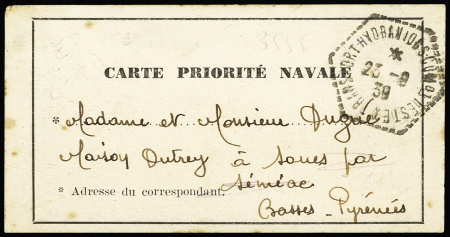 CARTE PRIORITÉ NAVALE
TRANSPORT-HYDRAVIONS-COMDT TESTE
*
23 -9
39
* Madame et Monsieur Dugue
Maison Dutrey à Soues par
Séméac
* Adresse du correspondant.
Basses-Pyrénées